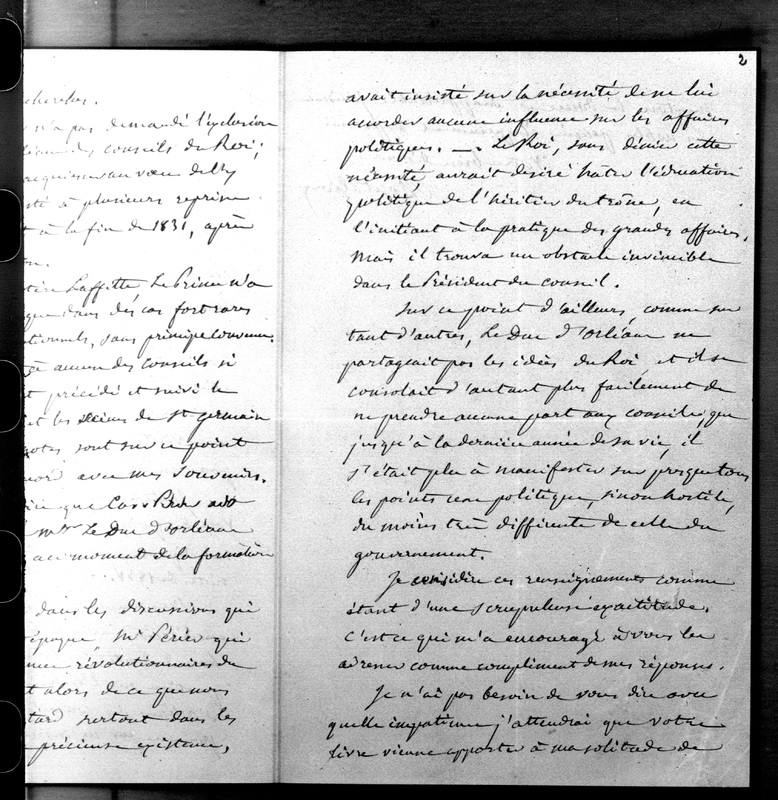 cherches.
n'a pas demandé l'exclusion
des conseils du Roi;
au vœu de
à plusieurs reprises
à la fin de 1831, après
Laffitte Le Prince n'a
que dans des cas fort rares
sans principe convenu.
aucun des conseils si
précédé et suivi le
et les scènes de St germain
notes sont sur ce point
avec mes souvenirs.
que Casr Périer
Mgr Le Duc d'orléans
au moment de la formation
dans les discussions qui
époque, Mr Périer qui
révolutionnaires de
alors de ce que nous
tard surtout dans les
précieuse existence,
2
avait insisté sur la nécessité de ne lui
accorder aucune influence sur les affaires
politiques. —. Le Roi, sans dénier cette
nécessité, aurait desiré hâter l'éducation
politique de l'héritier du trône, en
l'initiant à la pratique des grandes affaires,
mais il trouva un obstacle invincible
dans le Président du conseil.
Sur ce point d'ailleurs, comme sur
tant d'autres, Le Duc d'orléans ne
partageait pas les idées du Roi, et il se
consolait d'autant plus facilement de
ne prendre aucune part aux conseils, que
jusqu'à la dernière année de sa vie, il
s'était plu à manifester sur presque tous
les points une politique, sinon hostile,
du moins très différente de celle du
gouvernement.
Je considère ces renseignements comme
étant d'une scrupuleuse exactitude.
c'est ce qui m'a encouragé à vous les
adresser comme complément de mes réponses.
Je n'ai pas besoin de vous dire avec
quelle impatience j'attendrai que votre
livre vienne apporter à ma solitude de